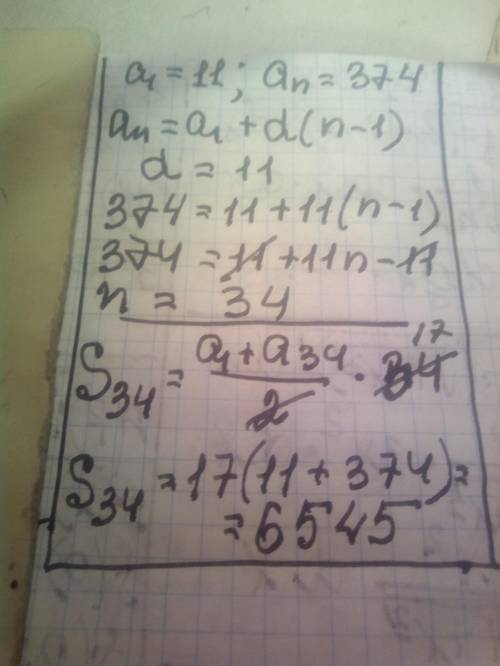 a₁ = 11; aₙ = 374
aₙ = a₁ + d(n-1)
d = 11
374 = 11 + 11(n-1)
374 = 11 + 11n - 11
n = 34
S₃₄ = (a₁ + a₃₄)/2 · 34 17
S₃₄ = 17(11 + 374) =
= 6545